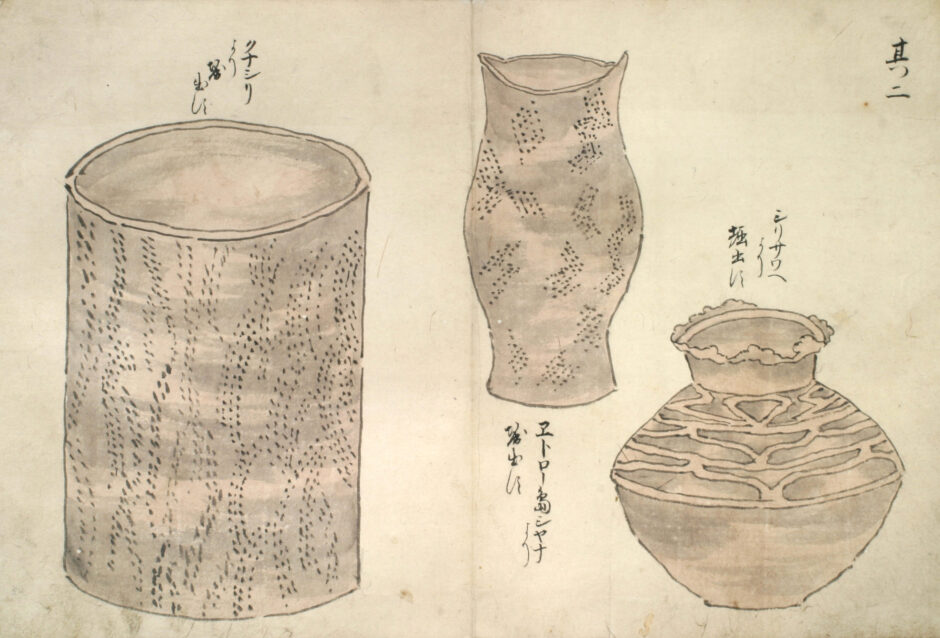 其ノ二
シリサワヘ
より
堀出ス
ヱトロー島シヤナ
より
堀出ス
クナシリ
より
堀
出ス